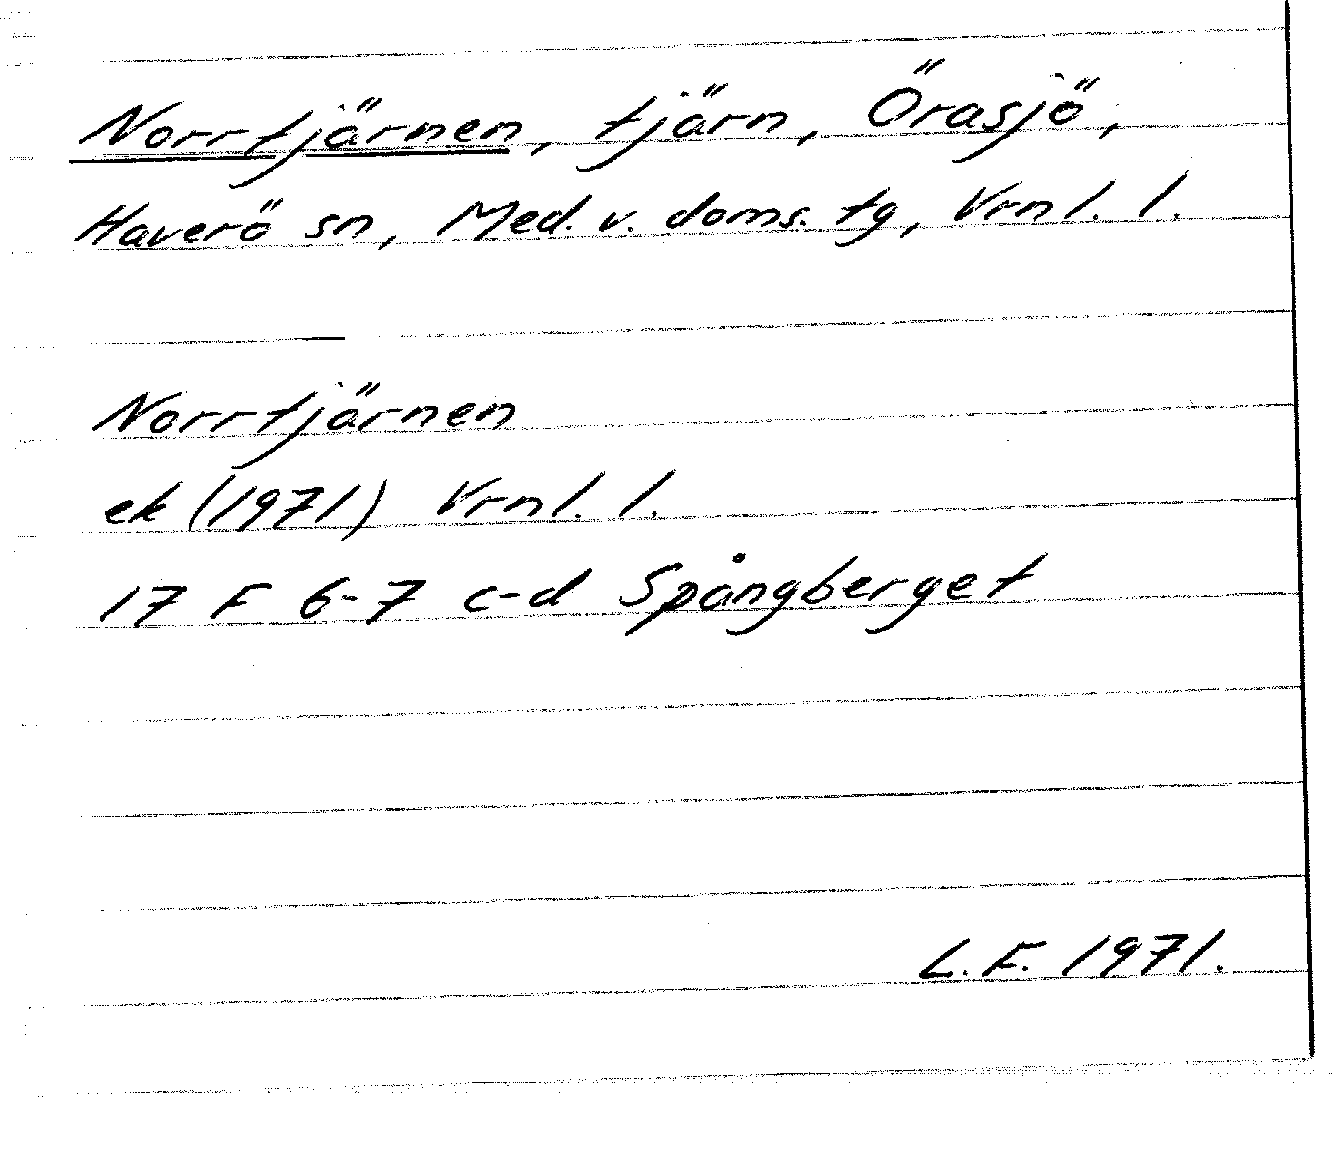 Norrtjärnen, tjärn, Örasjö,
Haverö sn, Med. v. doms. tg, Vrnl. l.
Norrtjärnen
ek (1971) Vrnl. l.
17 F 6-7 c-d Spångberget
L. F. 1971.